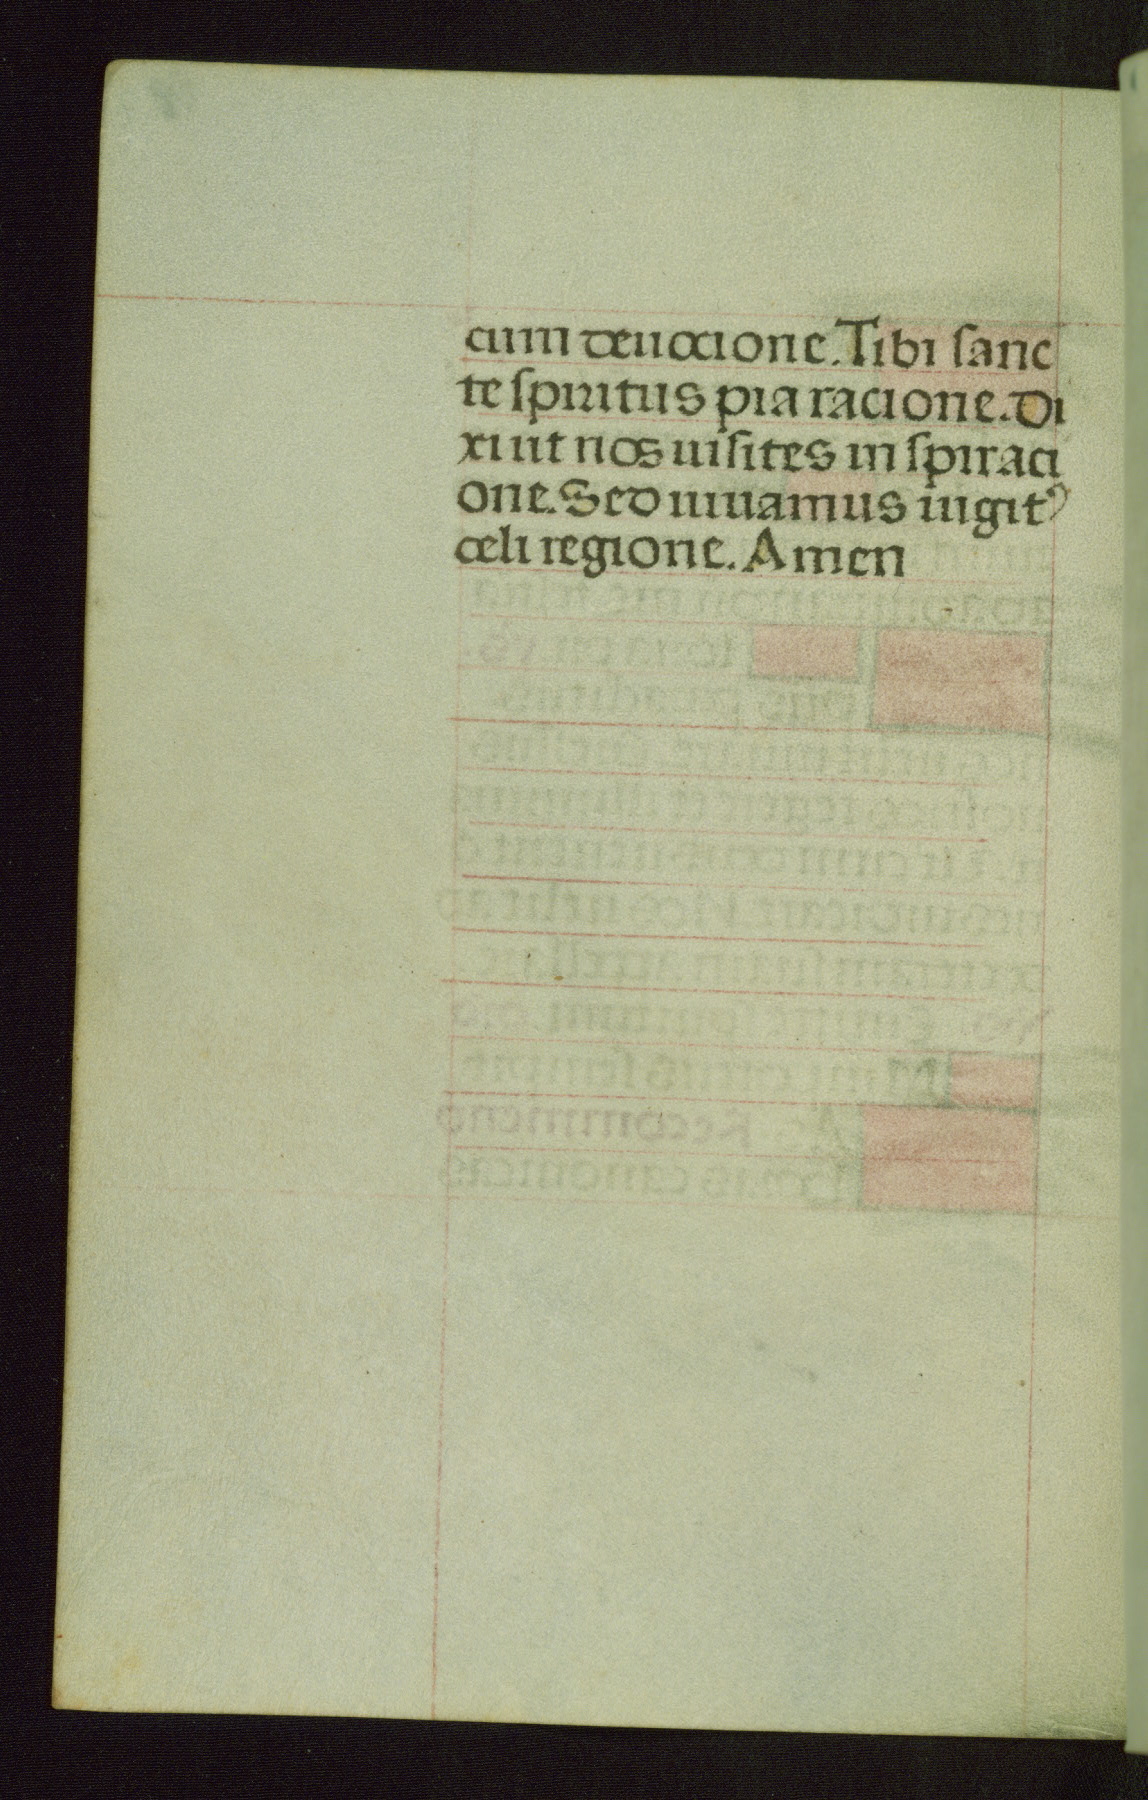 cum deuocione. Tibi sanc
te spiritus pia racione. Di
xi ut nos uisites inspiraci
one. Sed uiuamus iugit᾽
celi regione. Amen